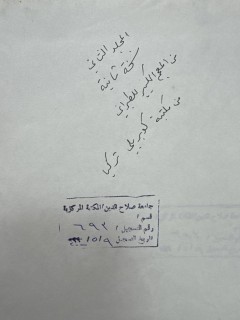 المجلد الثاني
نسخة ثانية
من المعجم الكبير للطبراني
من مكتبة كوبريلي تركيا
جامعة صلاح الدين/المكتبة المركزية
القسم /
رقم التسجيل / ٦٩٢ /
تاريخ التسجيل